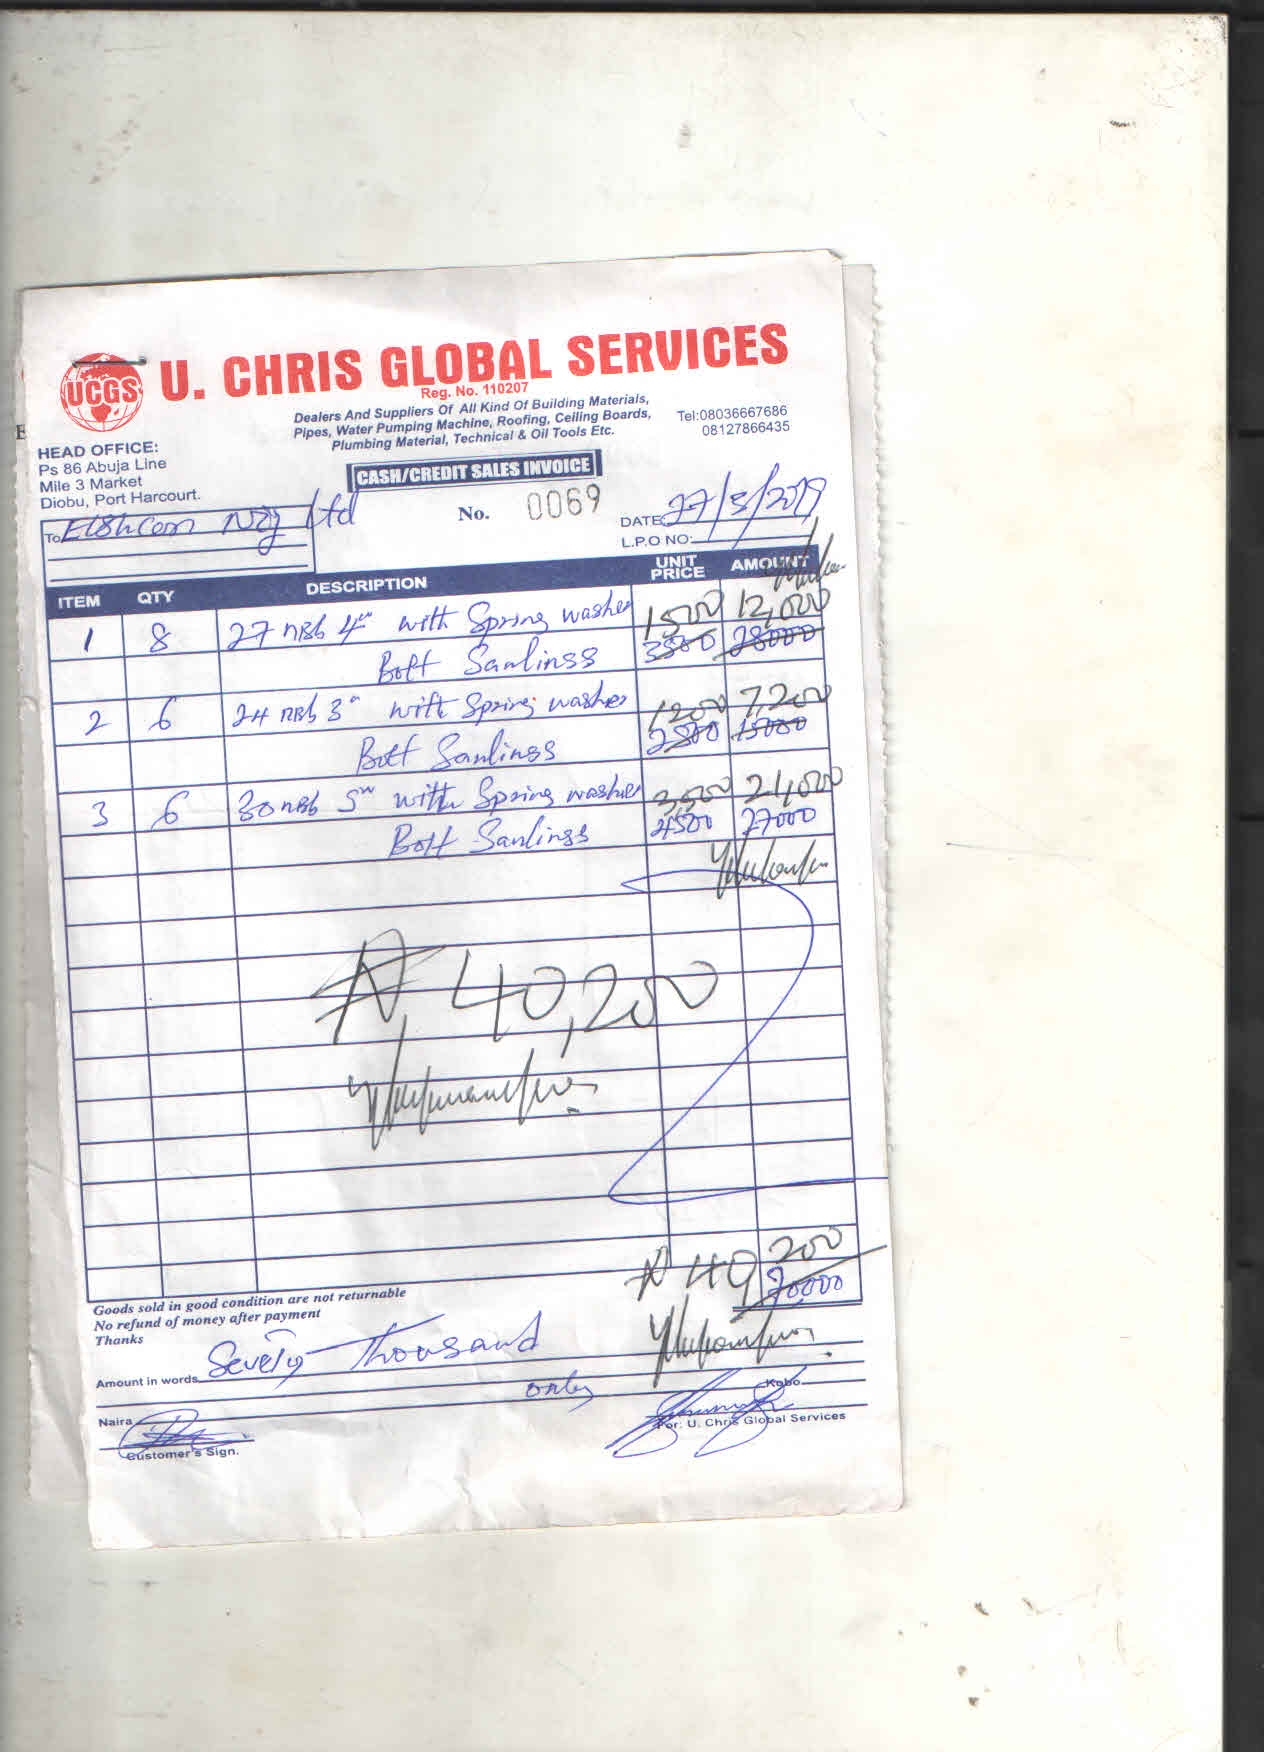 U. CHRIS GLOBAL SERVICES
UCGS
Reg. No. 110207
Dealers And Suppliers Of All Kind Of Building Materials,
Pipes, Water Pumping Machine, Roofing, Ceiling Boards,
Plumbing Material, Technical & Oil Tools Etc.
Tel:08036667686
08127866435
HEAD OFFICE:
Ps 86 Abuja Line
Mile 3 Market
Diobu, Port Harcourt.
CASH/CREDIT SALES INVOICE
No. 0069
DATE: 27/3/2019
L.P.O NO:
To Nig Ltd
ITEM QTY DESCRIPTION UNIT PRICE AMOUNT
1 8 27 4" with Spring washer 1500 12,000
Bolt 3500 28000
2 6 24 3" with Spring washer 1200 7,200
Bolt 2500 15000
3 6 30 5" with Spring washer 3,500 21,000
Bolt 4500 27000
₦ 40,200
₦ 40,200
70000
Goods sold in good condition are not returnable
No refund of money after payment
Thanks
Amount in words Seventy Thousand
only
Naira Kobo
Customer's Sign. For: U. Chris Global Services